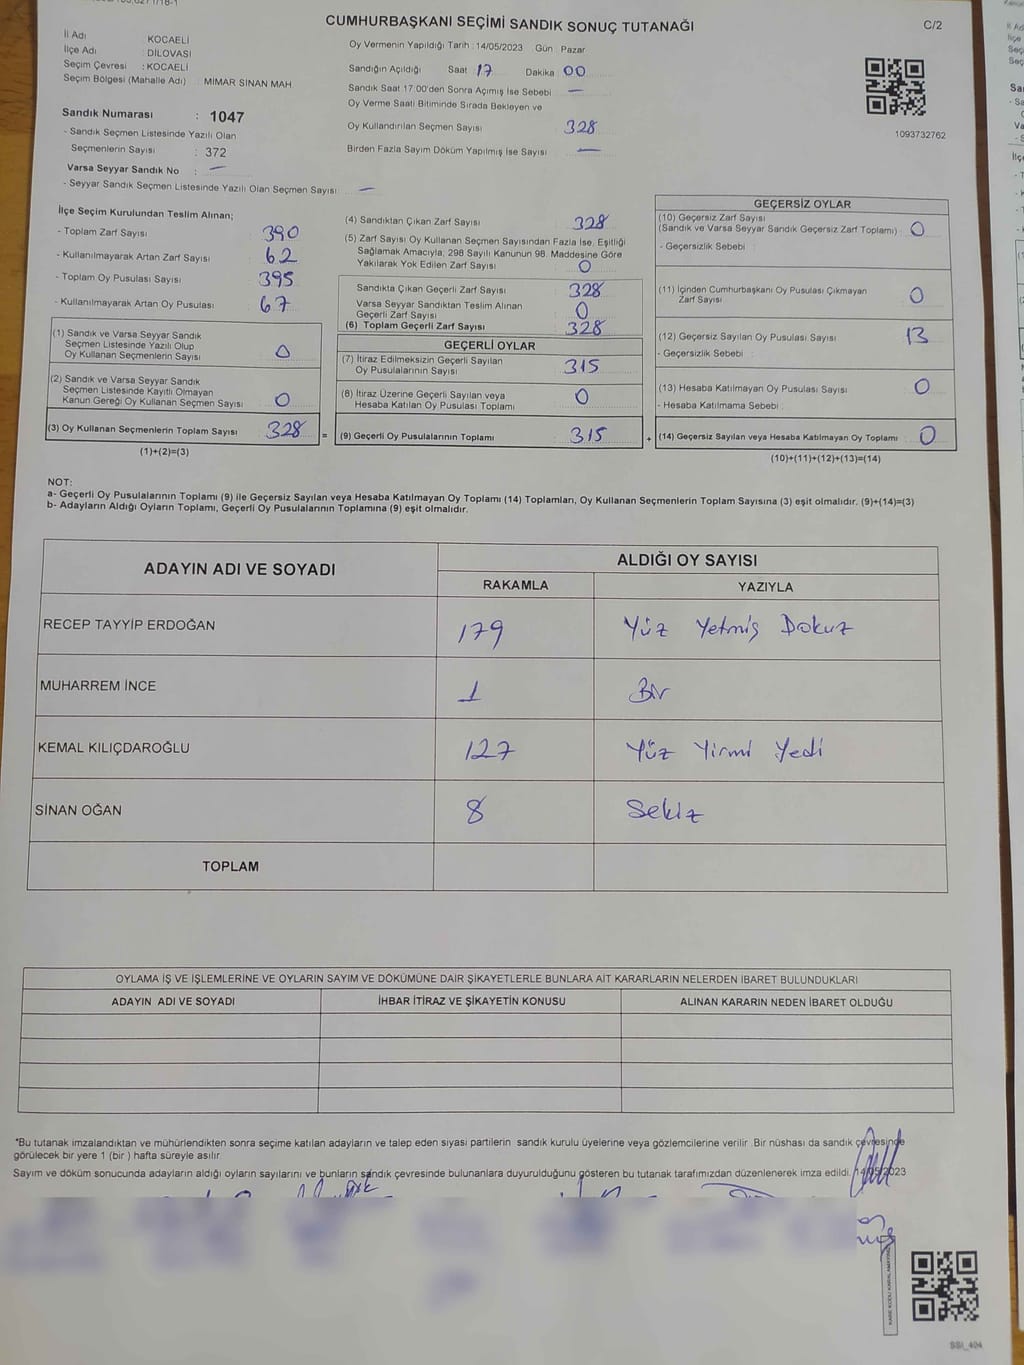 CUMHURBAŞKANI SEÇİMİ SANDIK SONUÇ TUTANAĞI
C/2
İl Adı : KOCAELİ
İlçe Adı : DİLOVASI
Seçim Çevresi : KOCAELİ
Seçim Bölgesi (Mahalle Adı) : MİMAR SİNAN MAH.
Oy Vermenin Yapıldığı Tarih : 14/05/2023 Gün : Pazar
Sandığın Açıldığı Saat : 17 Dakika 00
Sandık Saat 17.00'den Sonra Açımış İse Sebebi —
Oy Verme Saati Bitiminde Sırada Bekleyen ve
Oy Kullandırılan Seçmen Sayısı 328
Birden Fazla Sayım Döküm Yapılmış İse Sayısı —
1093732762
Sandık Numarası : 1047
- Sandık Seçmen Listesinde Yazılı Olan
Seçmenlerin Sayısı : 372
Varsa Seyyar Sandık No : —
- Seyyar Sandık Seçmen Listesinde Yazılı Olan Seçmen Sayısı: —
İlçe Seçim Kurulundan Teslim Alınan;
- Toplam Zarf Sayısı 390
- Kullanılmayarak Artan Zarf Sayısı 62
- Toplam Oy Pusulası Sayısı 395
- Kullanılmayarak Artan Oy Pusulası 67
(1) Sandık ve Varsa Seyyar Sandık
Seçmen Listesinde Yazılı Olup
Oy Kullanan Seçmenlerin Sayısı 0
(2) Sandık ve Varsa Seyyar Sandık
Seçmen Listesinde Kayıtlı Olmayan
Kanun Gereği Oy Kullanan Seçmen Sayısı 0
(3) Oy Kullanan Seçmenlerin Toplam Sayısı 328
(1)+(2)=(3)
=
(4) Sandıktan Çıkan Zarf Sayısı 328
(5) Zarf Sayısı Oy Kullanan Seçmen Sayısından Fazla İse, Eşitliği
Sağlamak Amacıyla; 298 Sayılı Kanunun 98. Maddesine Göre
Yakılarak Yok Edilen Zarf Sayısı 0
Sandıkta Çıkan Geçerli Zarf Sayısı 328
Varsa Seyyar Sandıktan Teslim Alınan
Geçerli Zarf Sayısı 0
(6) Toplam Geçerli Zarf Sayısı 328
GEÇERLİ OYLAR
(7) İtiraz Edilmeksizin Geçerli Sayılan
Oy Pusulalarının Sayısı 315
(8) İtiraz Üzerine Geçerli Sayılan veya
Hesaba Katılan Oy Pusulası Toplamı 0
(9) Geçerli Oy Pusulalarının Toplamı 315
+
GEÇERSİZ OYLAR
(10) Geçersiz Zarf Sayısı
(Sandık ve Varsa Seyyar Sandık Geçersiz Zarf Toplamı) : 0
- Geçersizlik Sebebi :
(11) İçinden Cumhurbaşkanı Oy Pusulası Çıkmayan
Zarf Sayısı 0
(12) Geçersiz Sayılan Oy Pusulası Sayısı 13
- Geçersizlik Sebebi
(13) Hesaba Katılmayan Oy Pusulası Sayısı 0
- Hesaba Katılmama Sebebi :
(14) Geçersiz Sayılan veya Hesaba Katılmayan Oy Toplamı 0
(10)+(11)+(12)+(13)=(14)
NOT:
a- Geçerli Oy Pusulalarının Toplamı (9) ile Geçersiz Sayılan veya Hesaba Katılmayan Oy Toplamı (14) Toplamları, Oy Kullanan Seçmenlerin Toplam Sayısına (3) eşit olmalıdır. (9)+(14)=(3)
b- Adayların Aldığı Oyların Toplamı, Geçerli Oy Pusulalarının Toplamına (9) eşit olmalıdır.
ADAYIN ADI VE SOYADI
ALDIĞI OY SAYISI
RAKAMLA YAZIYLA
RECEP TAYYİP ERDOĞAN 179 Yüz Yetmiş Dokuz
MUHARREM İNCE 1 Bir
KEMAL KILIÇDAROĞLU 127 Yüz Yirmi Yedi
SİNAN OĞAN 8 Sekiz
TOPLAM
OYLAMA İŞ VE İŞLEMLERİNE VE OYLARIN SAYIM VE DÖKÜMÜNE DAİR ŞİKAYETLERLE BUNLARA AİT KARARLARIN NELERDEN İBARET BULUNDUKLARI
ADAYIN ADI VE SOYADI İHBAR İTİRAZ VE ŞİKAYETİN KONUSU ALINAN KARARIN NEDEN İBARET OLDUĞU
*Bu tutanak imzalandıktan ve mühürlendikten sonra seçime katılan adayların ve talep eden siyasi partilerin sandık kurulu üyelerine veya gözlemcilerine verilir .Bir nüshası da sandık çevresinde
görülecek bir yere 1 (bir ) hafta süreyle asılır.
Sayım ve döküm sonucunda adayların aldığı oyların sayılarını ve bunların sandık çevresinde bulunanlara duyurulduğunu gösteren bu tutanak tarafımızdan düzenlenerek imza edildi. 14/05/2023
SSI_404